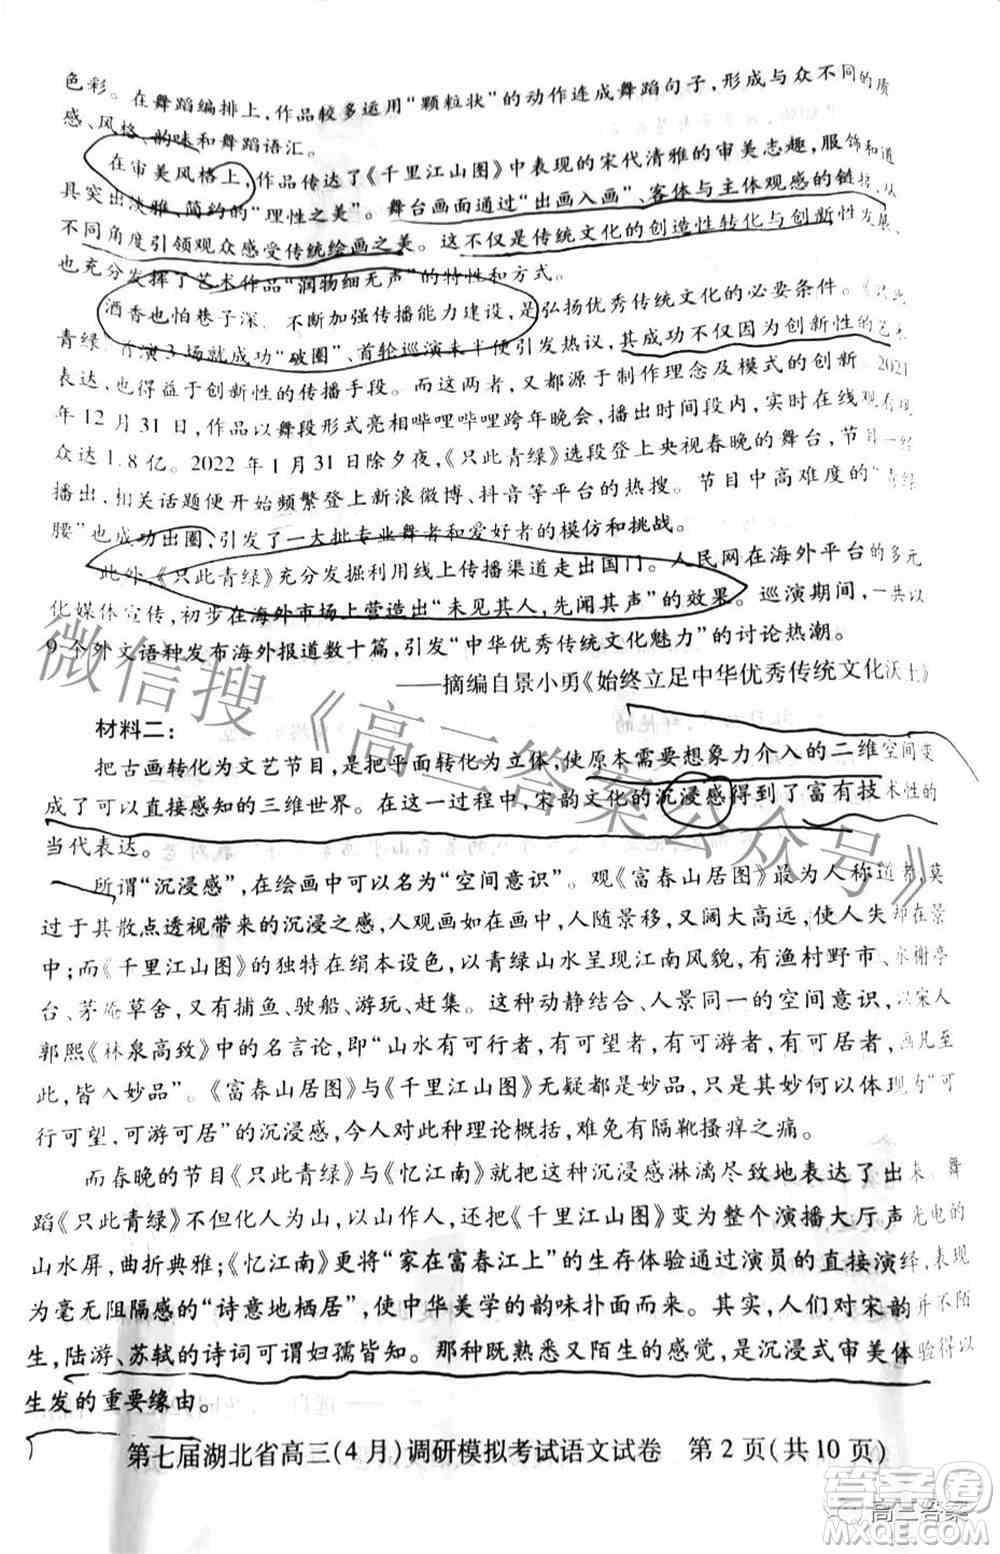 色彩。在舞蹈编排上，作品较多运用“颗粒状”的动作连成舞蹈句子，形成与众不同的质
感、风格、韵味和舞蹈语汇。
在审美风格上，作品传达了《千里江山图》中表现的宋代清雅的审美志趣，服饰和道
具突出淡雅、简约的“理性之美”。舞台画面通过“出画入画”、客体与主体观感的链接，从
不同角度引领观众感受传统绘画之美。这不仅是传统文化的创造性转化与创新性发展，
也充分发挥了艺术作品“润物细无声”的特性和方式。
酒香也怕巷子深，不断加强传播能力建设，是弘扬优秀传统文化的必要条件。《只此
青绿》首演3场就成功“破圈”、首轮巡演未半便引发热议，其成功不仅因为创新性的艺术
表达，也得益于创新性的传播手段。而这两者，又都源于制作理念及模式的创新。2021
年12月31日，作品以舞段形式亮相哔哩哔哩跨年晚会，播出时间段内，实时在线观看观
众达1.8亿。2022年1月31日除夕夜，《只此青绿》选段登上央视春晚的舞台，节目一经
播出，相关话题便开始频繁登上新浪微博、抖音等平台的热搜。节目中高难度的“青绿
腰”也成功出圈，引发了一大批专业舞者和爱好者的模仿和挑战。
此外，《只此青绿》充分发掘利用线上传播渠道走出国门。人民网在海外平台的多元
化媒体宣传，初步在海外市场上营造出“未见其人，先闻其声”的效果。巡演期间，一共以
9个外文语种发布海外报道数十篇，引发“中华优秀传统文化魅力”的讨论热潮。
——摘编自景小勇《始终立足中华优秀传统文化沃土》
材料二：
把古画转化为文艺节目，是把平面转化为立体，使原本需要想象力介入的二维空间变
成了可以直接感知的三维世界。在这一过程中，宋韵文化的沉浸感得到了富有技术性的
当代表达。
所谓“沉浸感”，在绘画中可以名为“空间意识”。观《富春山居图》最为人称道的，莫
过于其散点透视带来的沉浸之感，人观画如在画中，人随景移，又阔大高远，使人失却在景
中；而《千里江山图》的独特在绢本设色，以青绿山水呈现江南风貌，有渔村野市、水榭亭
台、茅庵草舍，又有捕鱼、驶船、游玩、赶集。这种动静结合、人景同一的空间意识，以宋人
郭熙《林泉高致》中的名言论，即“山水有可行者，有可望者，有可游者，有可居者，画凡至
此，皆入妙品”。《富春山居图》与《千里江山图》无疑都是妙品，但其妙何以体现为“可
行可望，可游可居”的沉浸感，今人对此种理论概括，难免有隔靴搔痒之痛。
而春晚的节目《只此青绿》与《忆江南》就把这种沉浸感淋漓尽致地表达了出来。舞
蹈《只此青绿》不但化人为山，以山作人，还把《千里江山图》变为整个演播大厅声光电的
山水屏，曲折典雅；《忆江南》更将“家在富春江上”的生存体验通过演员的直接演绎，表现
为毫无阻隔感的“诗意地栖居”，使中华美学的韵味扑面而来。其实，人们对宋韵并不陌
生，陆游、苏轼的诗词可谓妇孺皆知。那种既熟悉又陌生的感觉，是沉浸式审美体验得以
生发的重要缘由。
第七届湖北省高三（4月）调研模拟考试语文试卷　第2页（共10页）
微信搜《高三答案公众号》
答案圈
高三答案
MXQE.COM